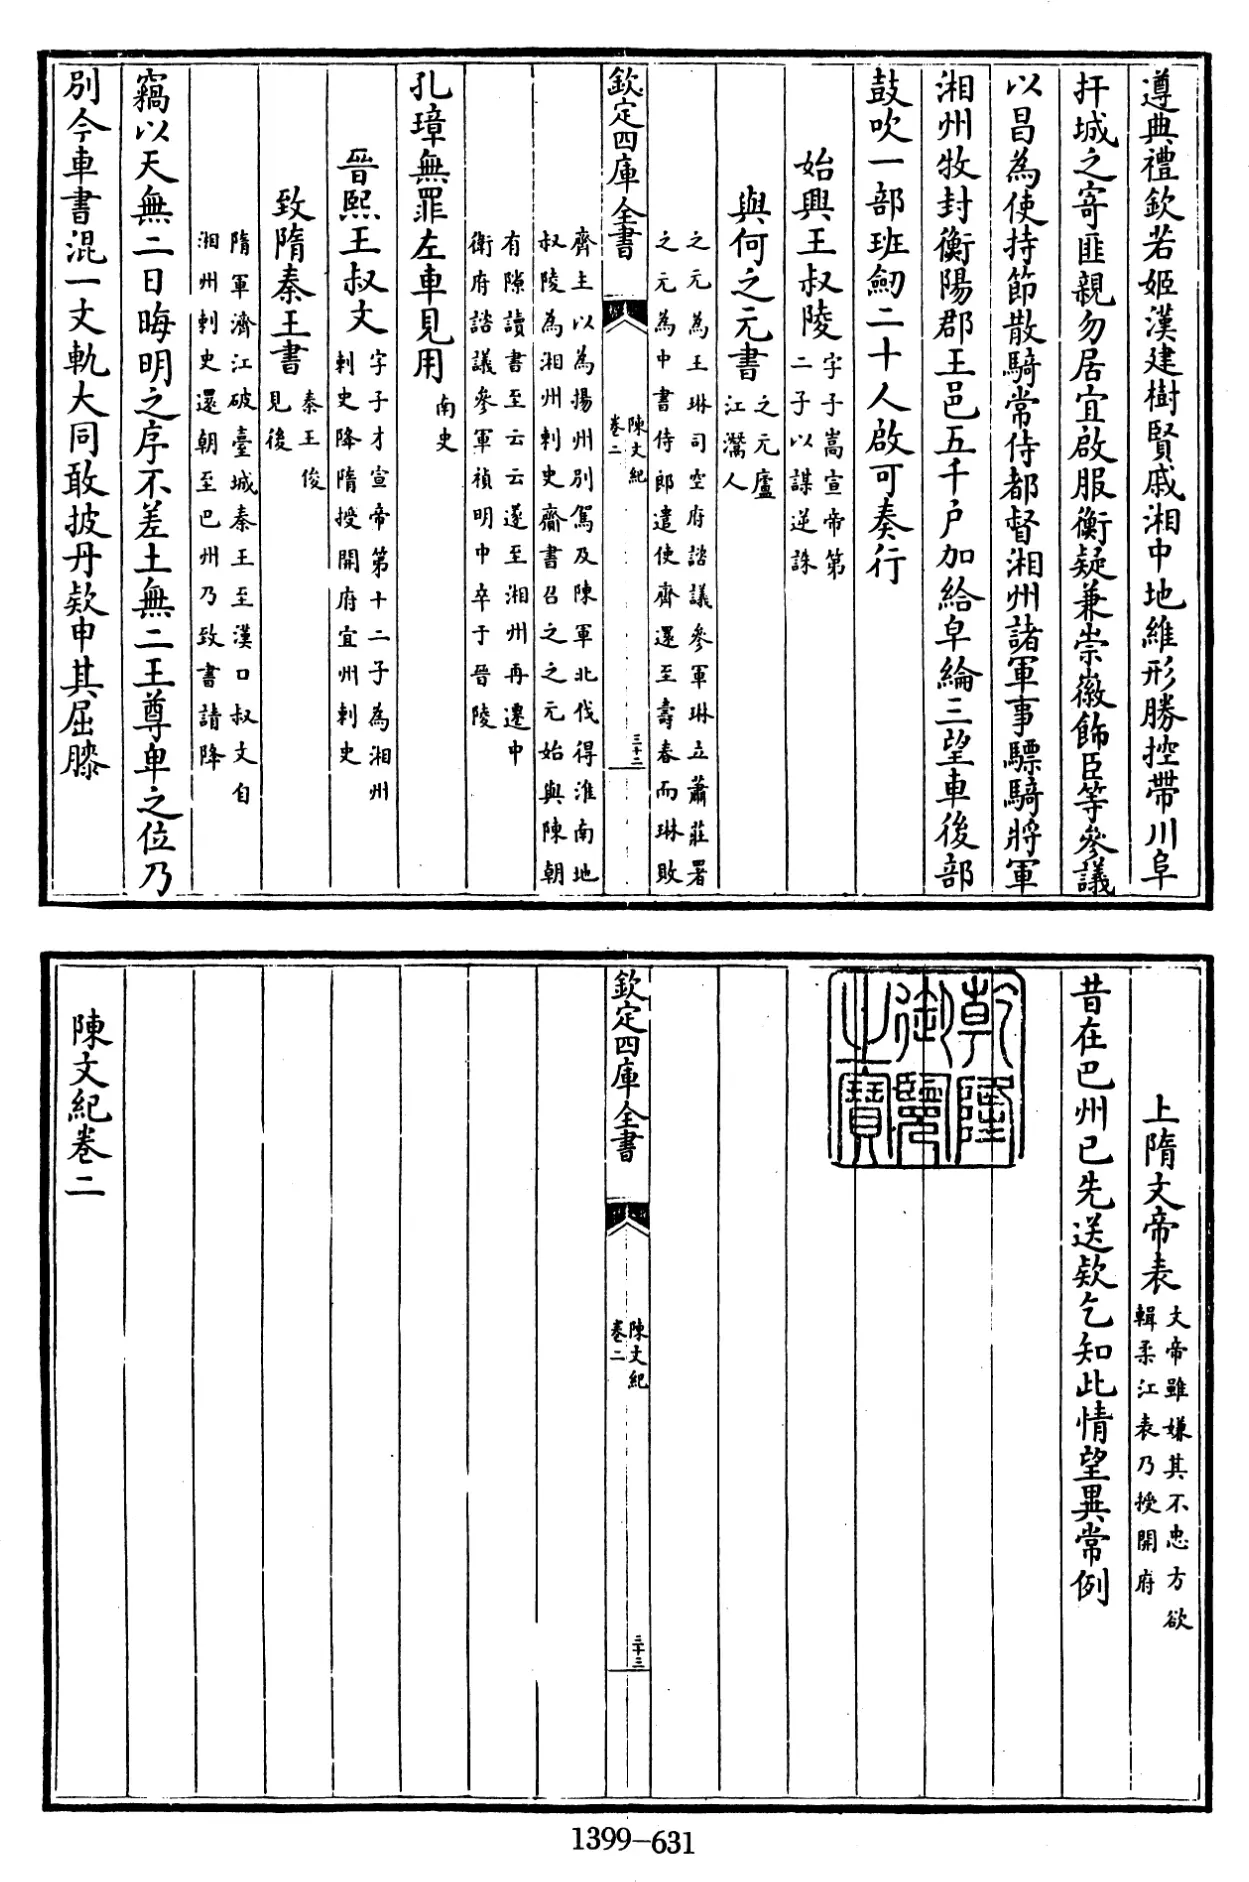 遵典禮欽若姬漢建樹賢戚湘中地維形勝控帶川阜
扞城之寄匪親勿居宜啟服衡疑兼崇徽飾臣等參議
以昌為使持節散騎常侍都督湘州諸軍事驃騎將軍
湘州牧封衡陽郡王邑五千户加給皁綸三望車後部
鼓吹一部班劒二十人啟可奏行
始興王叔陵
字子嵩宣帝第
二子以謀逆誅
與何之元書
之元廬
江灊人
之元為王琳司空府諮議參軍琳立蕭莊署
之元為中書侍郎遣使齊還至壽春而琳敗
欽定四庫全書
陳文紀
卷二
三十二
齊主以為揚州別駕及陳軍北伐得淮南地
叔陵為湘州刺史齎書召之之元始與陳朝
有隙讀書至云云遂至湘州再遷中
衛府諮議參軍禎明中卒于晉陵
孔璋無罪左車見用
南史
晉熙王叔文
字子才宣帝第十二子為湘州
刺史降隋授開府宜州刺史
致隋秦王書
秦王俊
見後
隋軍濟江破臺城秦王至漢口叔文自
湘州刺史還朝至巴州乃致書請降
竊以天無二日晦明之序不差土無二王尊卑之位乃
別今車書混一文軌大同敢披丹欵申其屈膝
上隋文帝表
文帝雖嫌其不忠方欲
輯柔江表乃授開府
昔在巴州已先送欵乞知此情望異常例
乾隆
御覽
之寶
欽定四庫全書
陳文紀
卷二
三十三
陳文紀卷二
1399-631